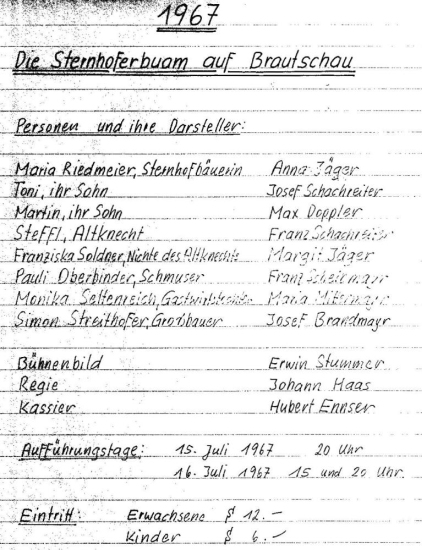 1967
Die Sternhoferbuam auf Brautschau
Personen und ihre Darsteller:
Maria Riedmeier, Sternhofbäuerin Anna Jäger
Toni, ihr Sohn Josef Schachreiter
Martin, ihr Sohn Max Doppler
Steffl, Altknecht Franz Schachreiter
Franziska Soldner, Nichte des Altknechts Margit Jäger
Pauli Oberbinder, Schmuser Franz
Monika Seltenreich, Maria
Simon Streithofer, Großbauer Josef Brandmayr
Bühnenbild Erwin Stummer
Regie Johann Haas
Kassier Hubert Ennser
Aufführungstage: 15. Juli 1967 20 Uhr
16. Juli 1967 15 und 20 Uhr
Eintritt: Erwachsene $ 12.-
Kinder $ 6.-